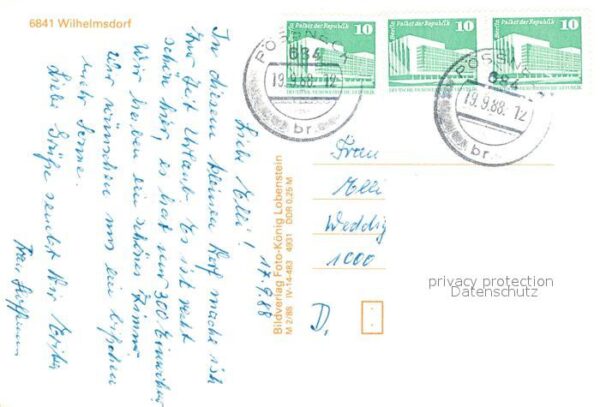 6841 Wilhelmsdorf
Liebe Elli! 17.9.88
In diesem kleinen Dorf mache ich
zur Zeit Urlaub. Es ist recht
schön hier, es hat nur 300 Einwohner
Wir haben ein schönes Zimmer
Wir wünschen uns ein bißchen
mehr Sonne.
Liebe Grüße sendet Dir
Frau Hoffmann
Bildverlag Foto-König Lobenstein
M 2/88 IV-14-483 4931 DDR 0,25 M
Berlin Palast der Republik 10
DEUTSCHE DEMOKRATISCHE REPUBLIK
Berlin Palast der Republik 10
DEUTSCHE DEMOKRATISCHE REPUBLIK
Berlin Palast der Republik 10
DEUTSCHE DEMOKRATISCHE REPUBLIK
PÖSSNECK
684
19.9.88. 12
br
PÖSSNECK
684
19.9.88. 12
br
Frau
Elli
Weddig
1000
D.
privacy protection
Datenschutz